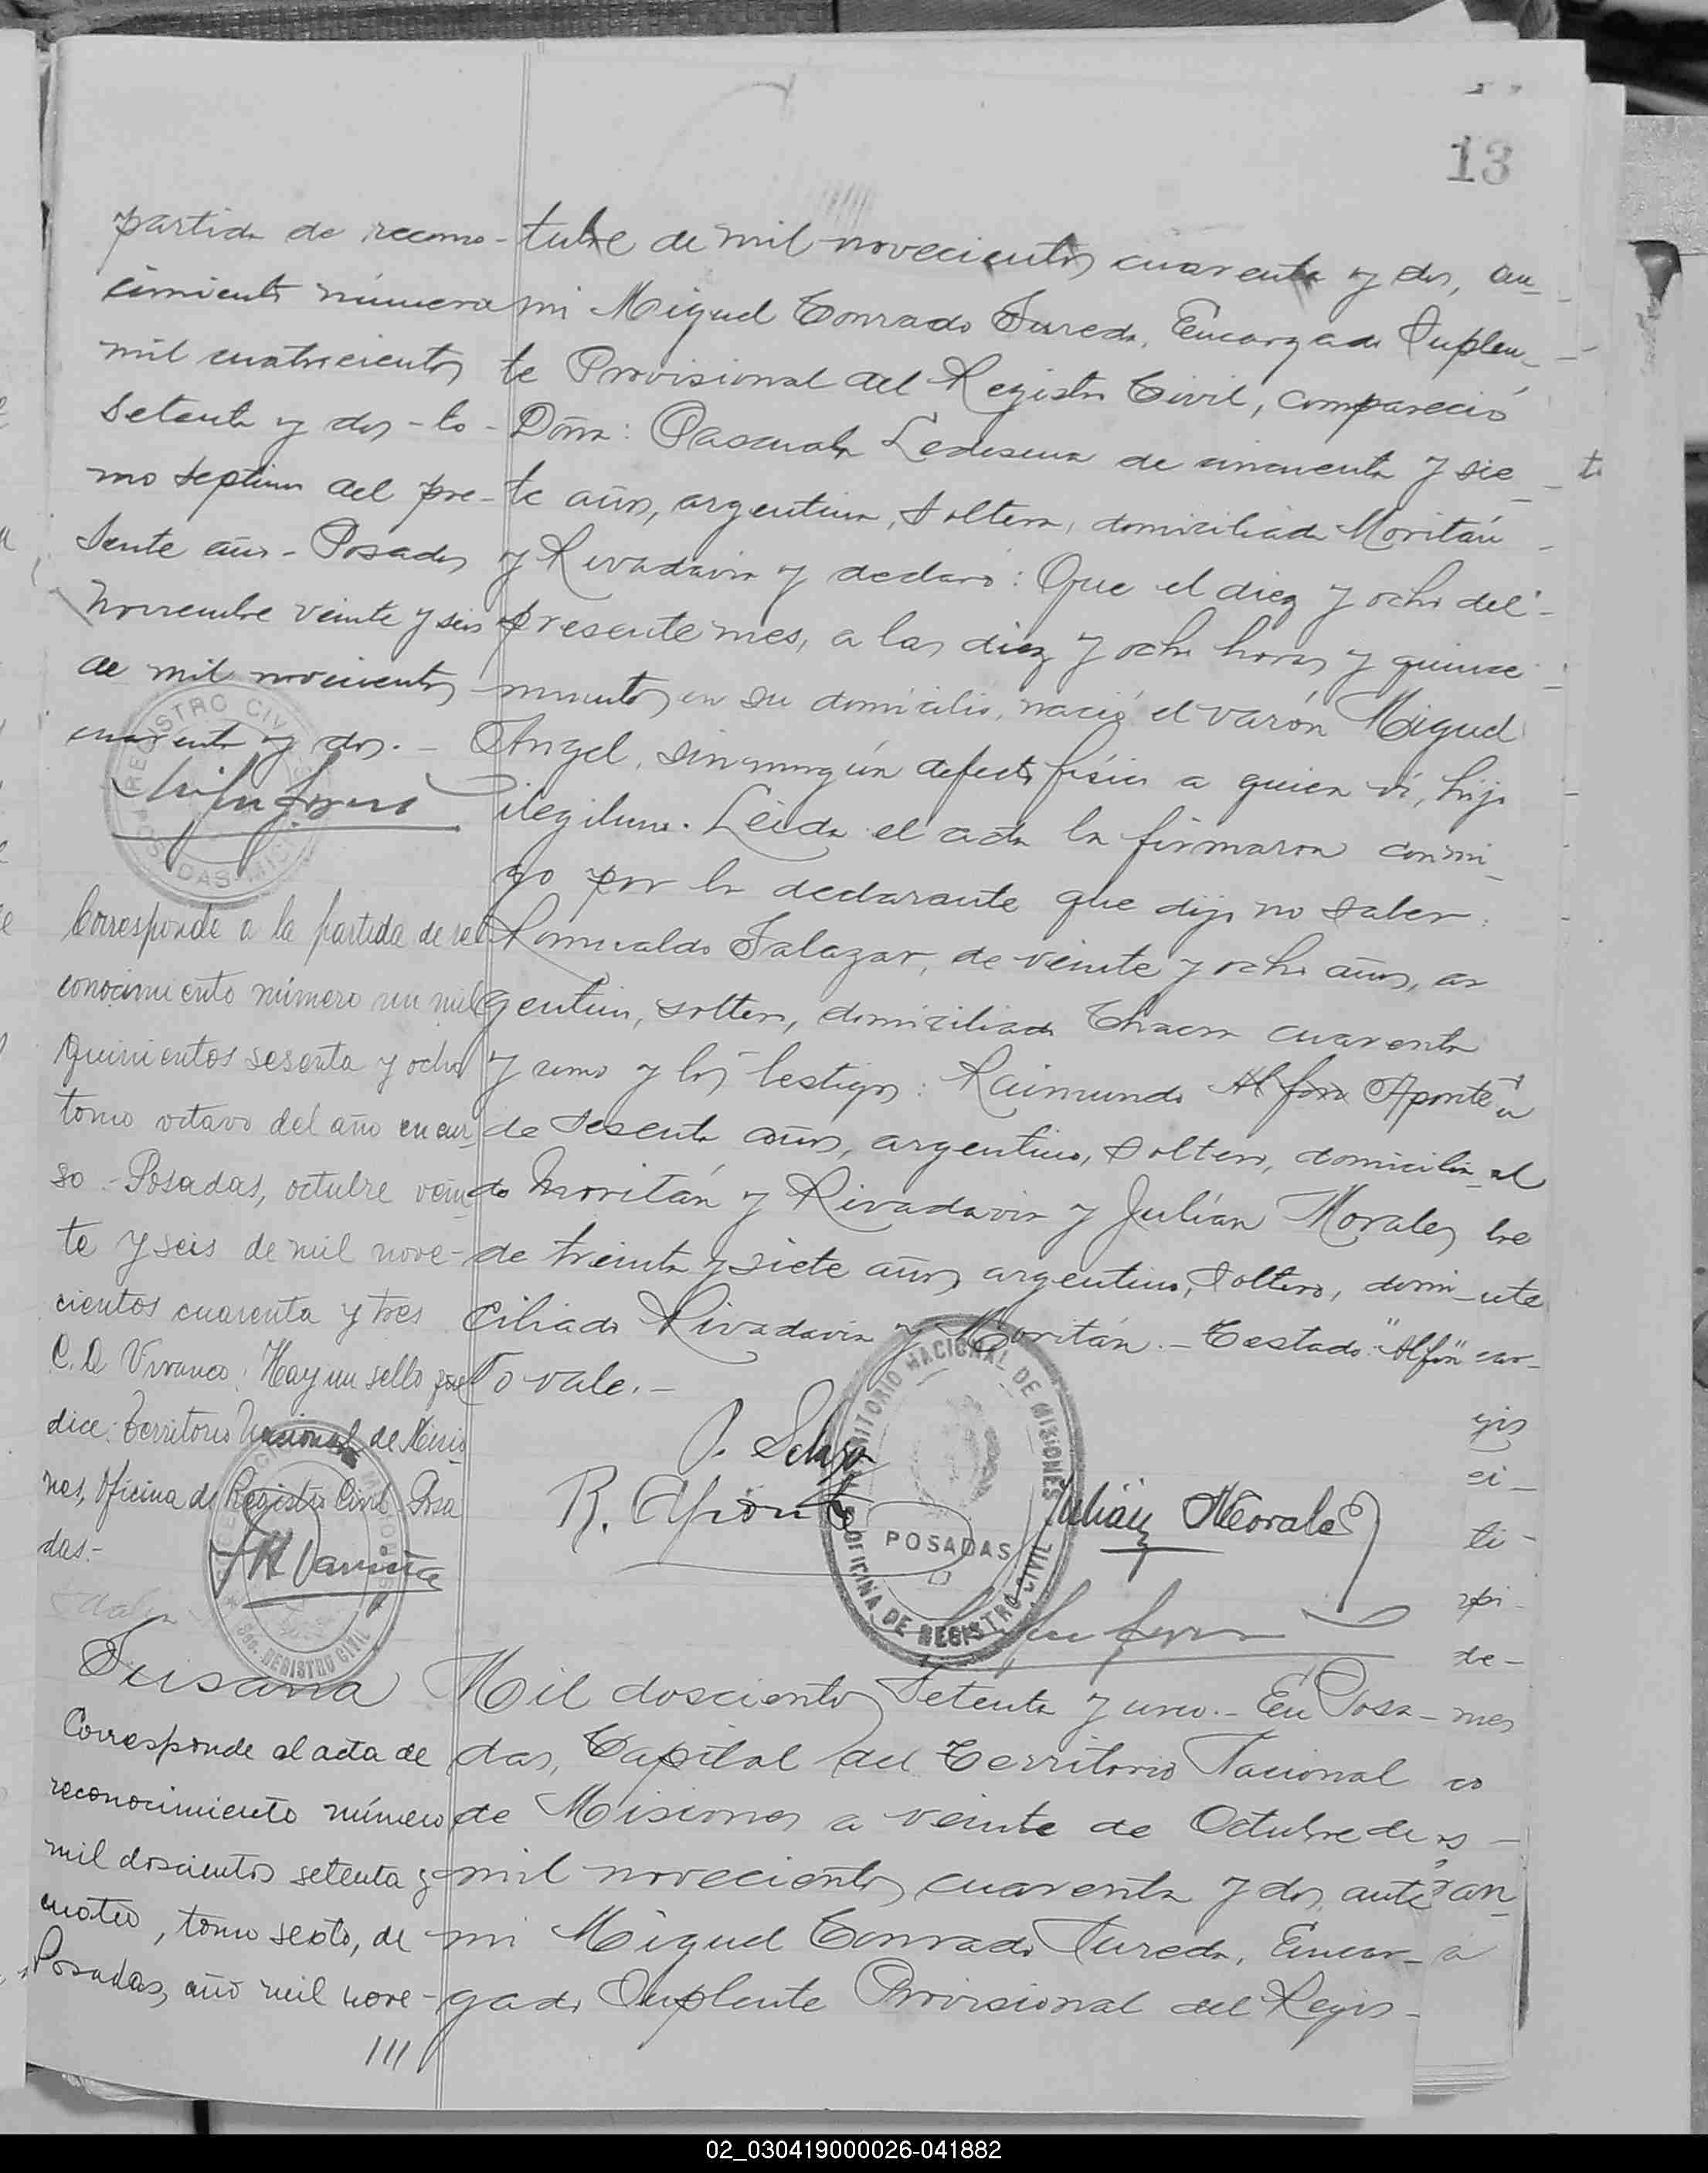 13
partida de recono-
cimiento número
mil cuatrocientos
setenta y dos - to-
mo septimo del pre-
sente año - Posadas
Noviembre veinte y seis
de mil novecientos
cuarenta y dos. -
Corresponde a la partida de re
conocimiento número un mil
quinientos sesenta y ocho
tomo octavo del año en cur-
so - Posadas, octubre vein-
te y seis de mil nove-
cientos cuarenta y tres
C. D. Vivanco: Hay un sello que
dice: Territorio Nacional de Misio-
nes, Oficina de Registro Civil Posa
das.-
tubre de mil novecientos cuarenta y dos, an-
mi Miguel Conrado Sureda, Encargado Suplen-
te Provisional del Registro Civil, compareció
Doña: Pascuala Ledesma de cincuenta y sie-
te años, argentina, soltera, domiciliada Moritán
y Rivadavia y declaró: Que el diez y ocho del
presente mes, a las diez y ocho horas y quince
minutos en su domicilio, nació el varón Miguel
Angel, sin ningún defecto físico a quien vi, hijo
ilegitimo. Leida el acta la firmaron conmi-
go por la declarante que dijo no saber:
Romualdo Salazar, de veinte y ocho años, ar
gentino, soltero, domiciliado Chaco cuarenta
y uno y los testigos: Raimundo Alfon Aponte
de sesenta años, argentino, soltero, domicilia
do Moritán y Rivadavia y Julián Morales
de treinta y siete años argentino, soltero, domi-
ciliado Rivadavia y Moritán. - Testado: "Alfon"
o vale. -
R. Aponte
Julián Morales
TERRITORIO NACIONAL DE MISIONES
POSADAS
OFICINA DE REGISTRO CIVIL
Susana
Corresponde al acta de
reconocimiento número
mil doscientos setenta y
cuatro, tomo sexto, de
Posadas, año mil nove-
///
Mil doscientos setenta y uno. - En Posa-
das, Capital del Territorio Nacional
de Misiones a veinte de Octubre de
mil novecientos cuarenta y dos, ante
mi Miguel Conrado Sureda, Encar-
gado Suplente Provisional del Regis-
02_030419000026-041882